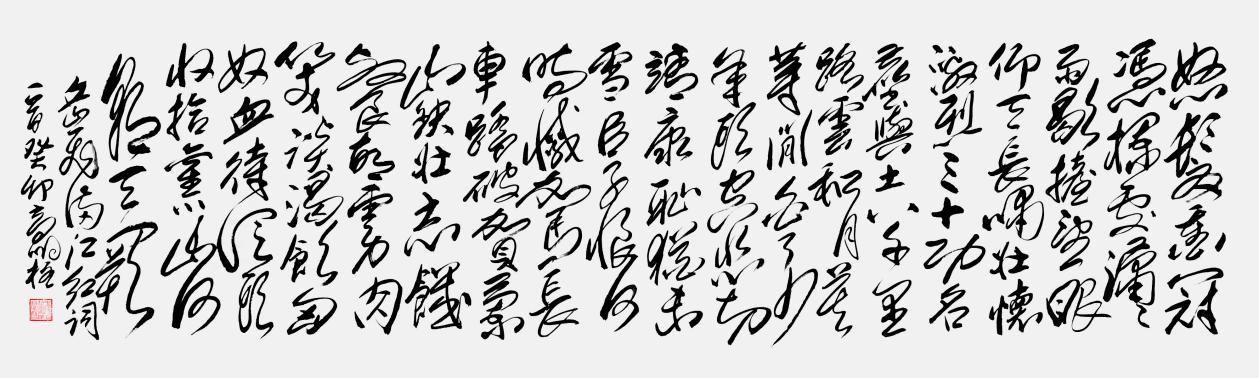 怒髮衝冠
憑欄處瀟々
雨歇擡望眼
仰天長嘯壯懷
激烈三十功名
塵與土八千里
路雲和月莫
等閒白了少
年頭空悲切
靖康恥猶未
雪臣子恨何
時滅駕長
車踏破賀蘭
山缺壯志饑
餐胡虜肉
笑談渴飲匈
奴血待從頭
收拾舊山河
朝天闕
岳飛滿江紅詞
一首癸卯